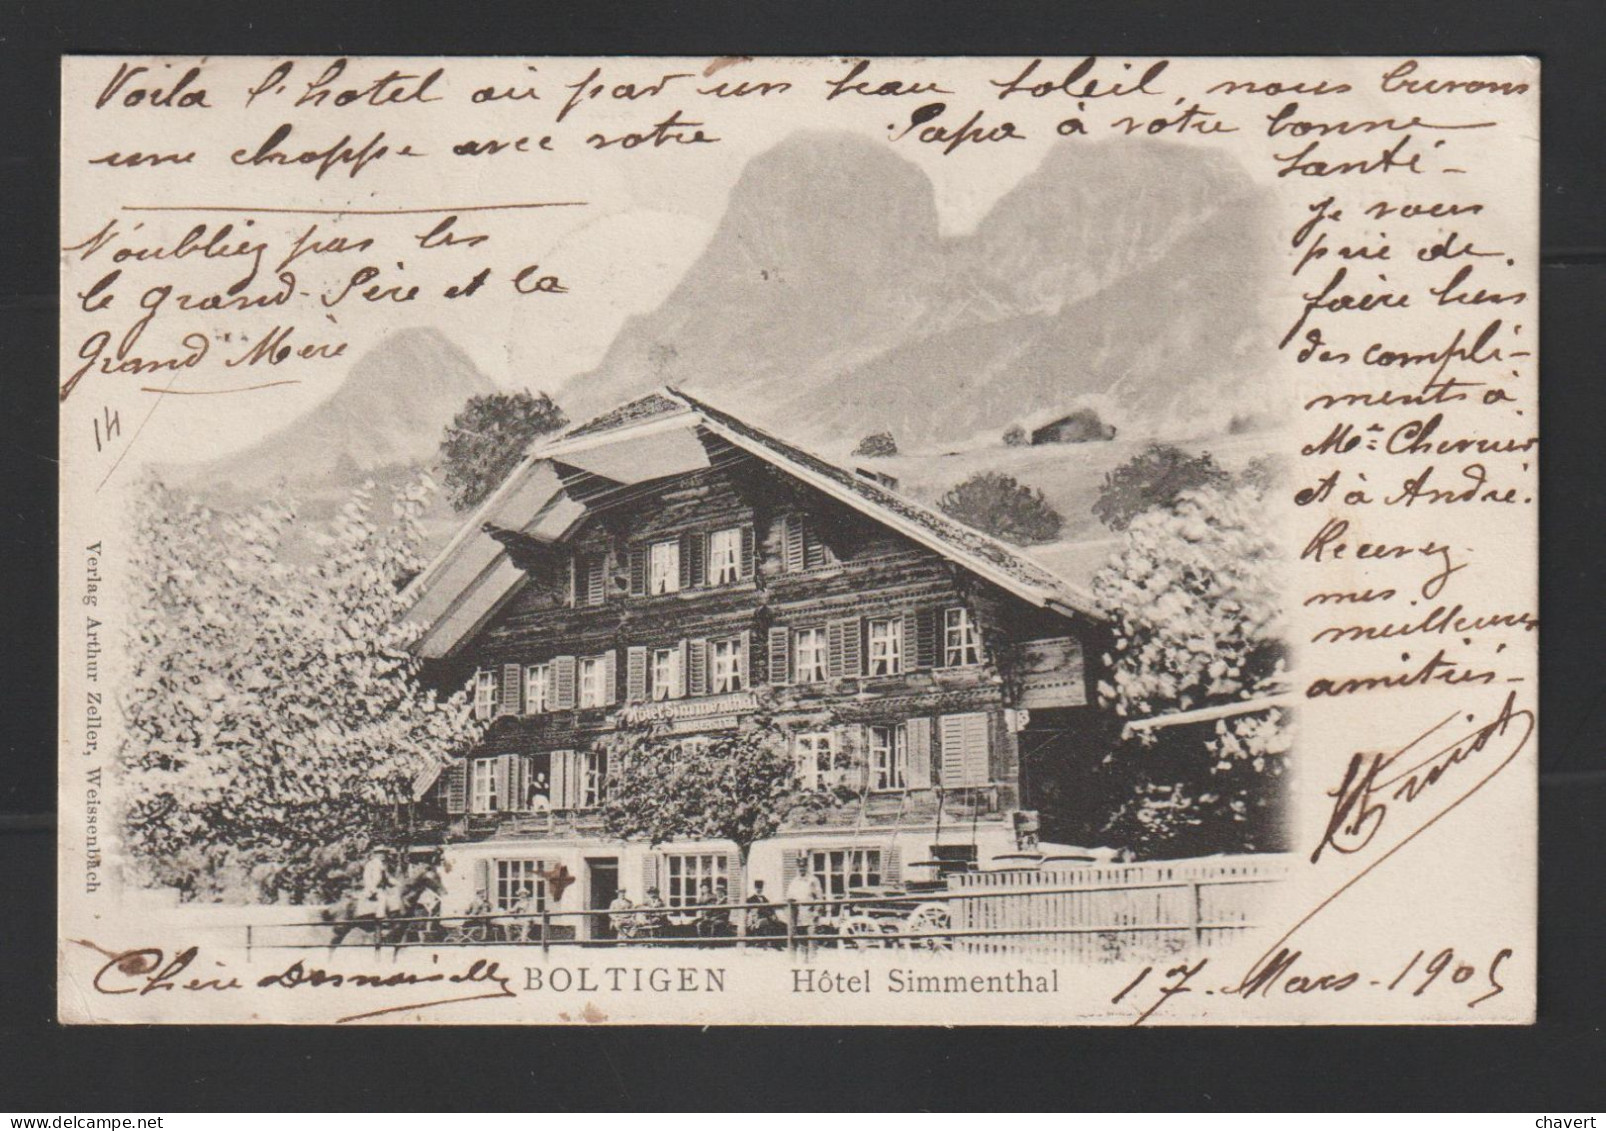 Voila l'hotel où par un beau soleil, nous buvons
une choppe avec votre Papa à votre bonne
santé -
je vous
prie de
faire bien
des compli-
ments à
Mr Chevrier
et à André.
Recevez
mes
meilleures
amitiés -
N'oubliez pas les
le Grand-Père et la
Grand Mère
14
Verlag Arthur Zeller, Weissenbach
Hôtel Simmenthal
Chère Demoiselle
BOLTIGEN Hôtel Simmenthal
17 - Mars - 1905
chavert